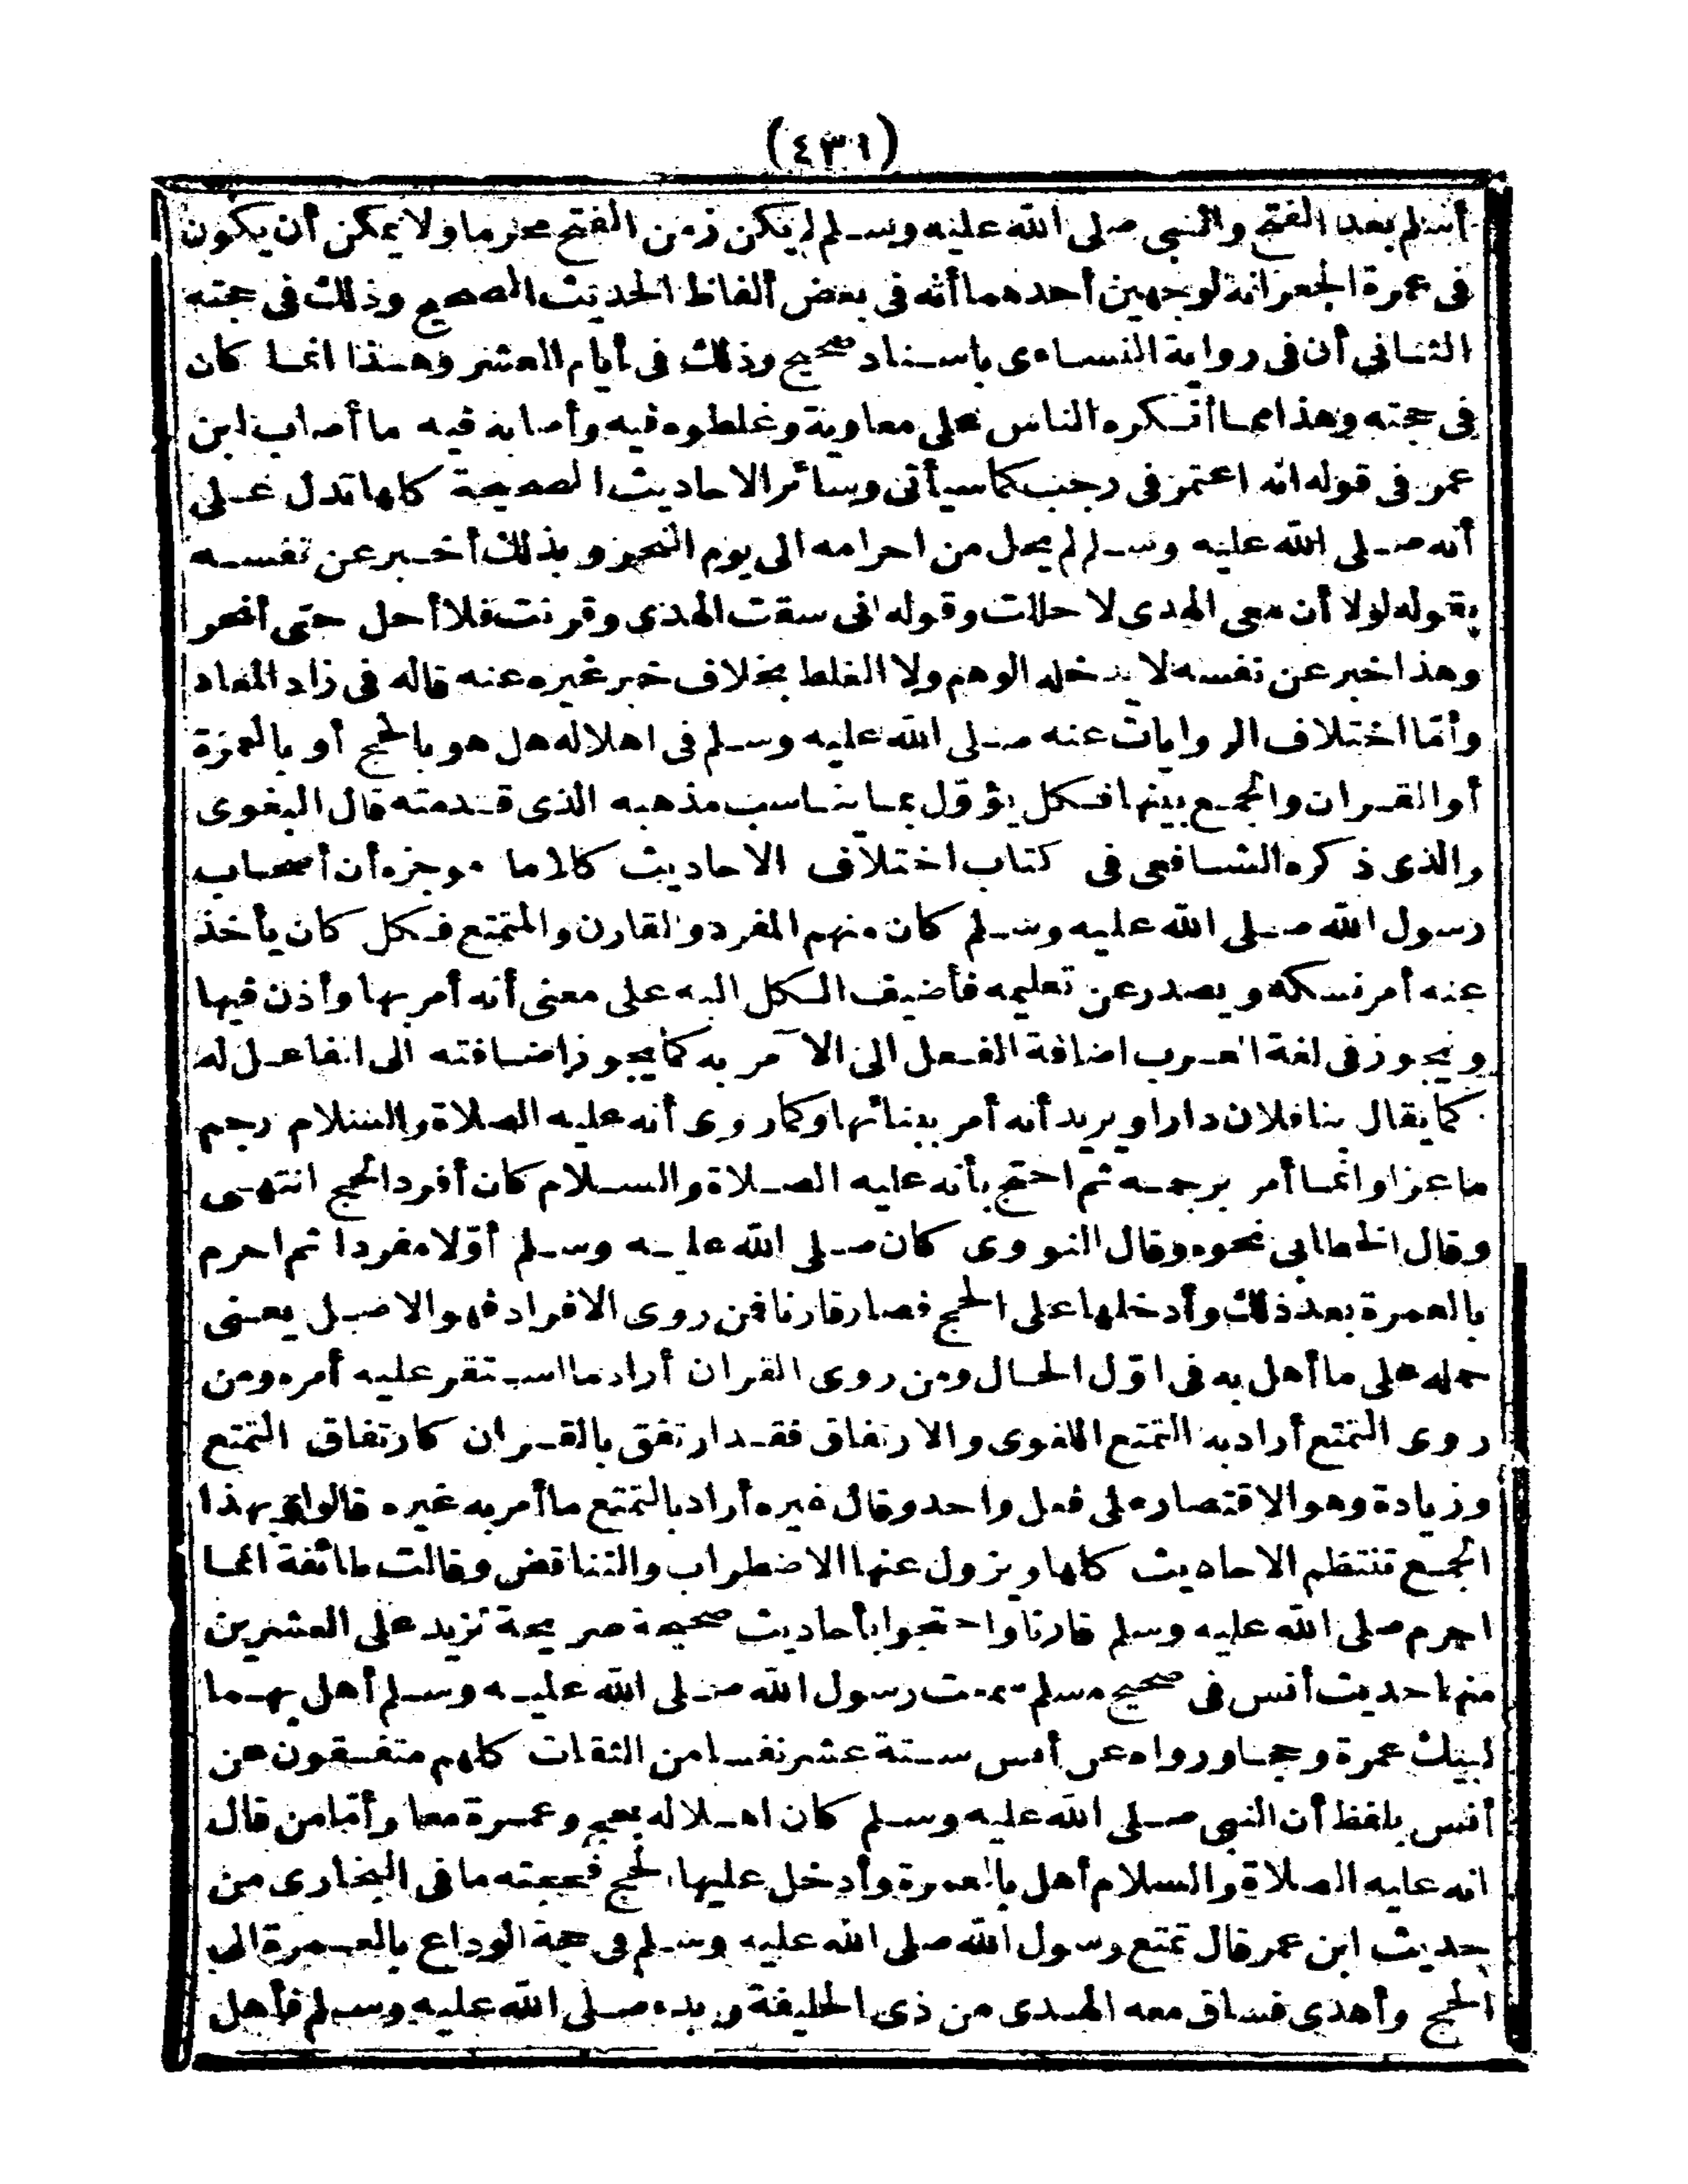 (٤٣١)
أسلم بعد الفتح والنبي صلى الله عليه وسلم لم يكن زمن الفتح محرما ولا يمكن أن يكون
فى عمرة الجعرانة لوجهين أحدهما أنه فى بعض ألفاظ الحديث الصحيح وذلك فى حجته
الثانى أن فى رواية النساءى باسناد صحيح وذلك فى أيام العشر وهذا انما كان
فى حجته وهذا مما أنكره الناس على معاوية وغلطوه فيه وأصابه فيه ما أصاب ابن
عمر فى قوله انه اعتمر فى رجب كما سيأتى وسائر الاحاديث الصحيحة كلها تدل على
أنه صلى الله عليه وسلم لم يحل من احرامه الى يوم النحر وبذلك أخبر عن نفسه
بقوله لولا أن معى الهدى لا حللت وقوله انى سقت الهدى وقرنت فلا أحل حتى أنحر
وهذا خبر عن نفسه لا يدخله الوهم ولا الغلط بخلاف خبر غيره عنه قاله فى زاد المعاد
وأما اختلاف الروايات عنه صلى الله عليه وسلم فى اهلاله هل هو بالحج أو بالعمرة
أو القران والجمع بينها فكل يؤوّل بما يناسب مذهبه الذى قدمته قال البغوى
والذى ذكره الشافعى فى كتاب اختلاف الاحاديث كلاما موجزه أن أصحاب
رسول الله صلى الله عليه وسلم كان منهم المفرد والقارن والمتمتع فكل كان يأخذ
عنه أمر نسكه ويصدر عن تعليمه فأضيف الكل اليه على معنى أنه أمر بها وأذن فيها
ويجوز فى لغة العرب اضافة الفعل الى الآمر به كما يجوز اضافته الى الفاعل له
كما يقال بنا فلان دارا ويريد أنه أمر ببنائها وكما روى أنه عليه الصلاة والسلام رجم
ماعزا وانما أمر برجمه ثم احتج بأنه عليه الصلاة والسلام كان أفرد الحج انتهى
وقال الخطابى نحوه وقال النووى كان صلى الله عليه وسلم أوّلا مفردا ثم احرم
بالعمرة بعد ذلك وأدخلها على الحج فصار قارنا فمن روى الافراد فهو الاصل يعنى
حمله على ما أهل به فى اوّل الحال ومن روى القران أراد ما استقر عليه أمره ومن
روى التمتع أراد به التمتع اللغوى والارتفاق فقد ارتفق بالقران كارتفاق التمتع
وزيادة وهو الاقتصار على فعل واحد وقال غيره أراد بالتمتع ما أمر به غيره قالوا وبهذا
الجمع تنتظم الاحاديث كلها ويزول عنها الاضطراب والتناقض وقالت طائفة انما
احرم صلى الله عليه وسلم قارنا واحتجوا بأحاديث صحيحة صريحة تزيد على العشرين
منها حديث أنس فى صحيح مسلم سمعت رسول الله صلى الله عليه وسلم أهل بهما
لبيك عمرة وحجا ورواه عن أنس ستة عشر نفسا من الثقات كلهم متفقون عن
أنس بلفظ أن النبى صلى الله عليه وسلم كان اهلاله بحج وعمرة معا وأمّا من قال
انه عليه الصلاة والسلام أهل بالعمرة وأدخل عليها الحج فحجته ما فى البخارى من
حديث ابن عمر قال تمتع رسول الله صلى الله عليه وسلم فى حجة الوداع بالعمرة الى
الحج وأهدى فساق معه الهدى من ذى الحليفة وبدء صلى الله عليه وسلم فأهل